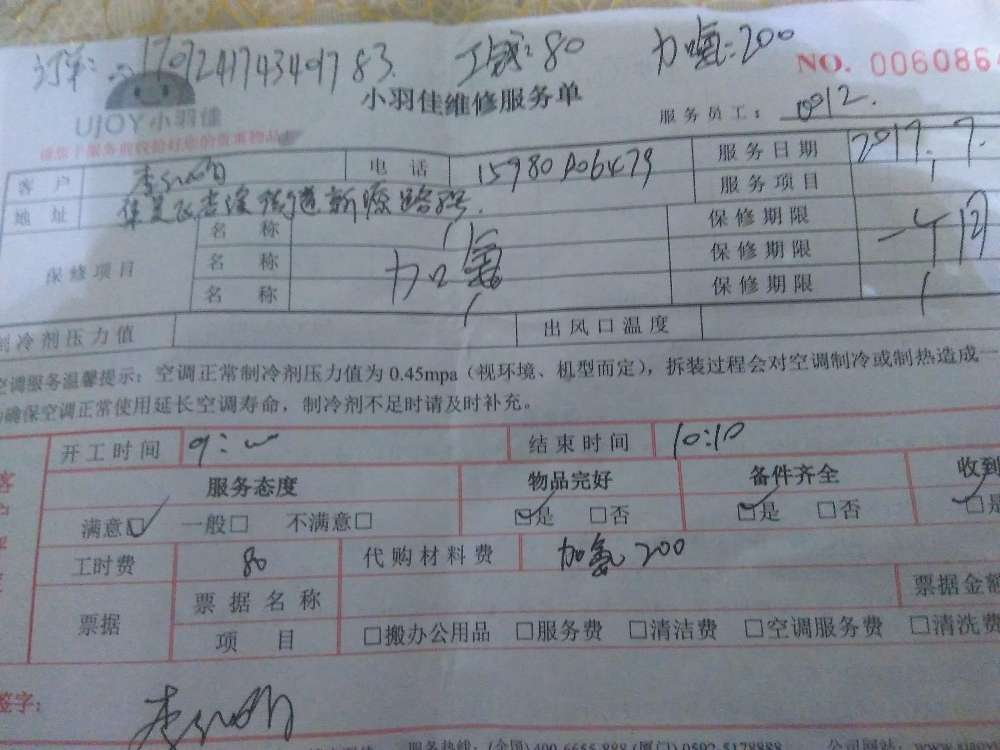 订单: 170724174340783. 工费: 80 加氨: 200
NO. 006086
小羽佳维修服务单
UJOY小羽佳
服务员工: 0912.
客户 电话 服务日期 2017.7.
服务项目
地址 集美区杏滨街道新源路
保修项目 名称 保修期限
名称 加氨 保修期限 一个月
名称 保修期限
制冷剂压力值 出风口温度
空调服务温馨提示：空调正常制冷剂压力值为 0.45mpa（视环境、机型而定），拆装过程会对空调制冷或制热造成一
确保空调正常使用延长空调寿命，制冷剂不足时请及时补充。
开工时间 9: 结束时间 10:10
服务态度 物品完好 备件齐全 收到
满意☑ 一般□ 不满意□ ☑是 □否 ☑是 □否 ☑是
工时费 80 代购材料费 加氨 200
票据 票据名称 票据金额
项目 □搬办公用品 □服务费 □清洁费 □空调服务费 □清洗费
签字:
服务热线: (全国)400-6655-888 (厦门)0592-5178888 公司网站: